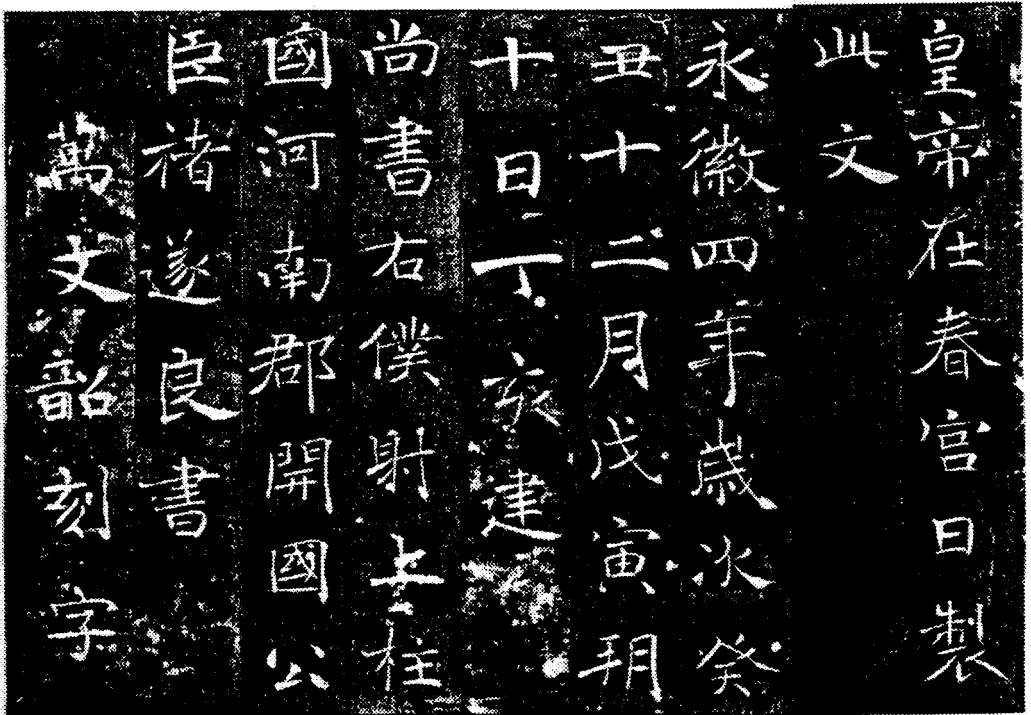 皇帝在春宮日製
此文
永徽四年歲次癸
丑十二月戊寅朔
十日丁亥建
尚書右僕射上柱
國河南郡開國公
臣褚遂良書
萬文韶刻字